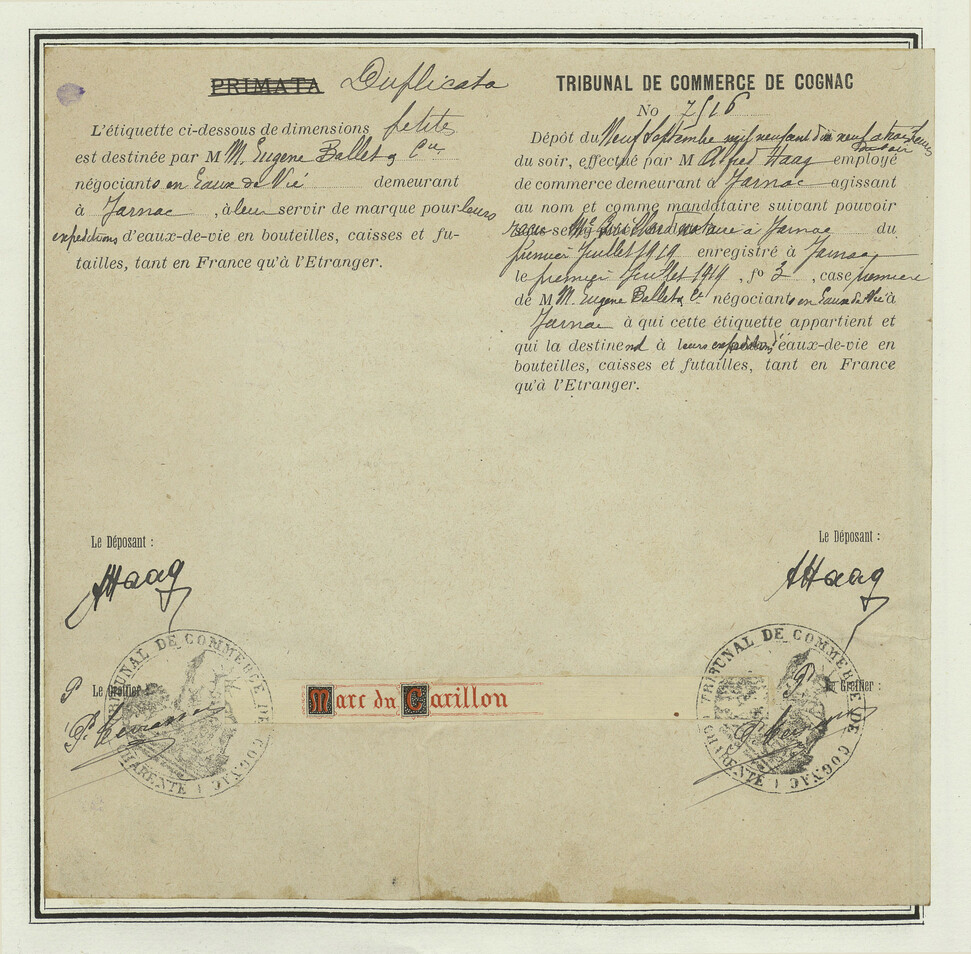 PRIMATA Duplicata
L'étiquette ci-dessous de dimensions petites
est destinée par M M. Eugene Ballet & Cie
négociants en Eaux de Vie demeurant
à Jarnac, à leur servir de marque pour leurs
expéditions d'eaux-de-vie en bouteilles, caisses et fu-
tailles, tant en France qu'à l'Etranger.
TRIBUNAL DE COMMERCE DE COGNAC
No 7516
Dépôt du Neuf Septembre mil neuf cent dix neuf à trois heures
du soir, effectué par M Alfred Haag employé
de commerce demeurant à Jarnac agissant
au nom et comme mandataire suivant pouvoir
notaire à Jarnac du
premier Juillet 1919 enregistré à Jarnac
le premier Juillet 1919, fo 3, case premiere
de M M. Eugene Ballet & Cie négociants en Eaux de Vie à
Jarnac à qui cette étiquette appartient et
qui la destinent à leurs expéditions d'eaux-de-vie en
bouteilles, caisses et futailles, tant en France
qu'à l'Etranger.
Le Déposant :
AHaag
Le Déposant :
AHaag
TRIBUNAL DE COMMERCE DE COGNAC (CHARENTE)
P Le Greffier :
Marc du Carillon
TRIBUNAL DE COMMERCE DE COGNAC (CHARENTE)
P Le Greffier :